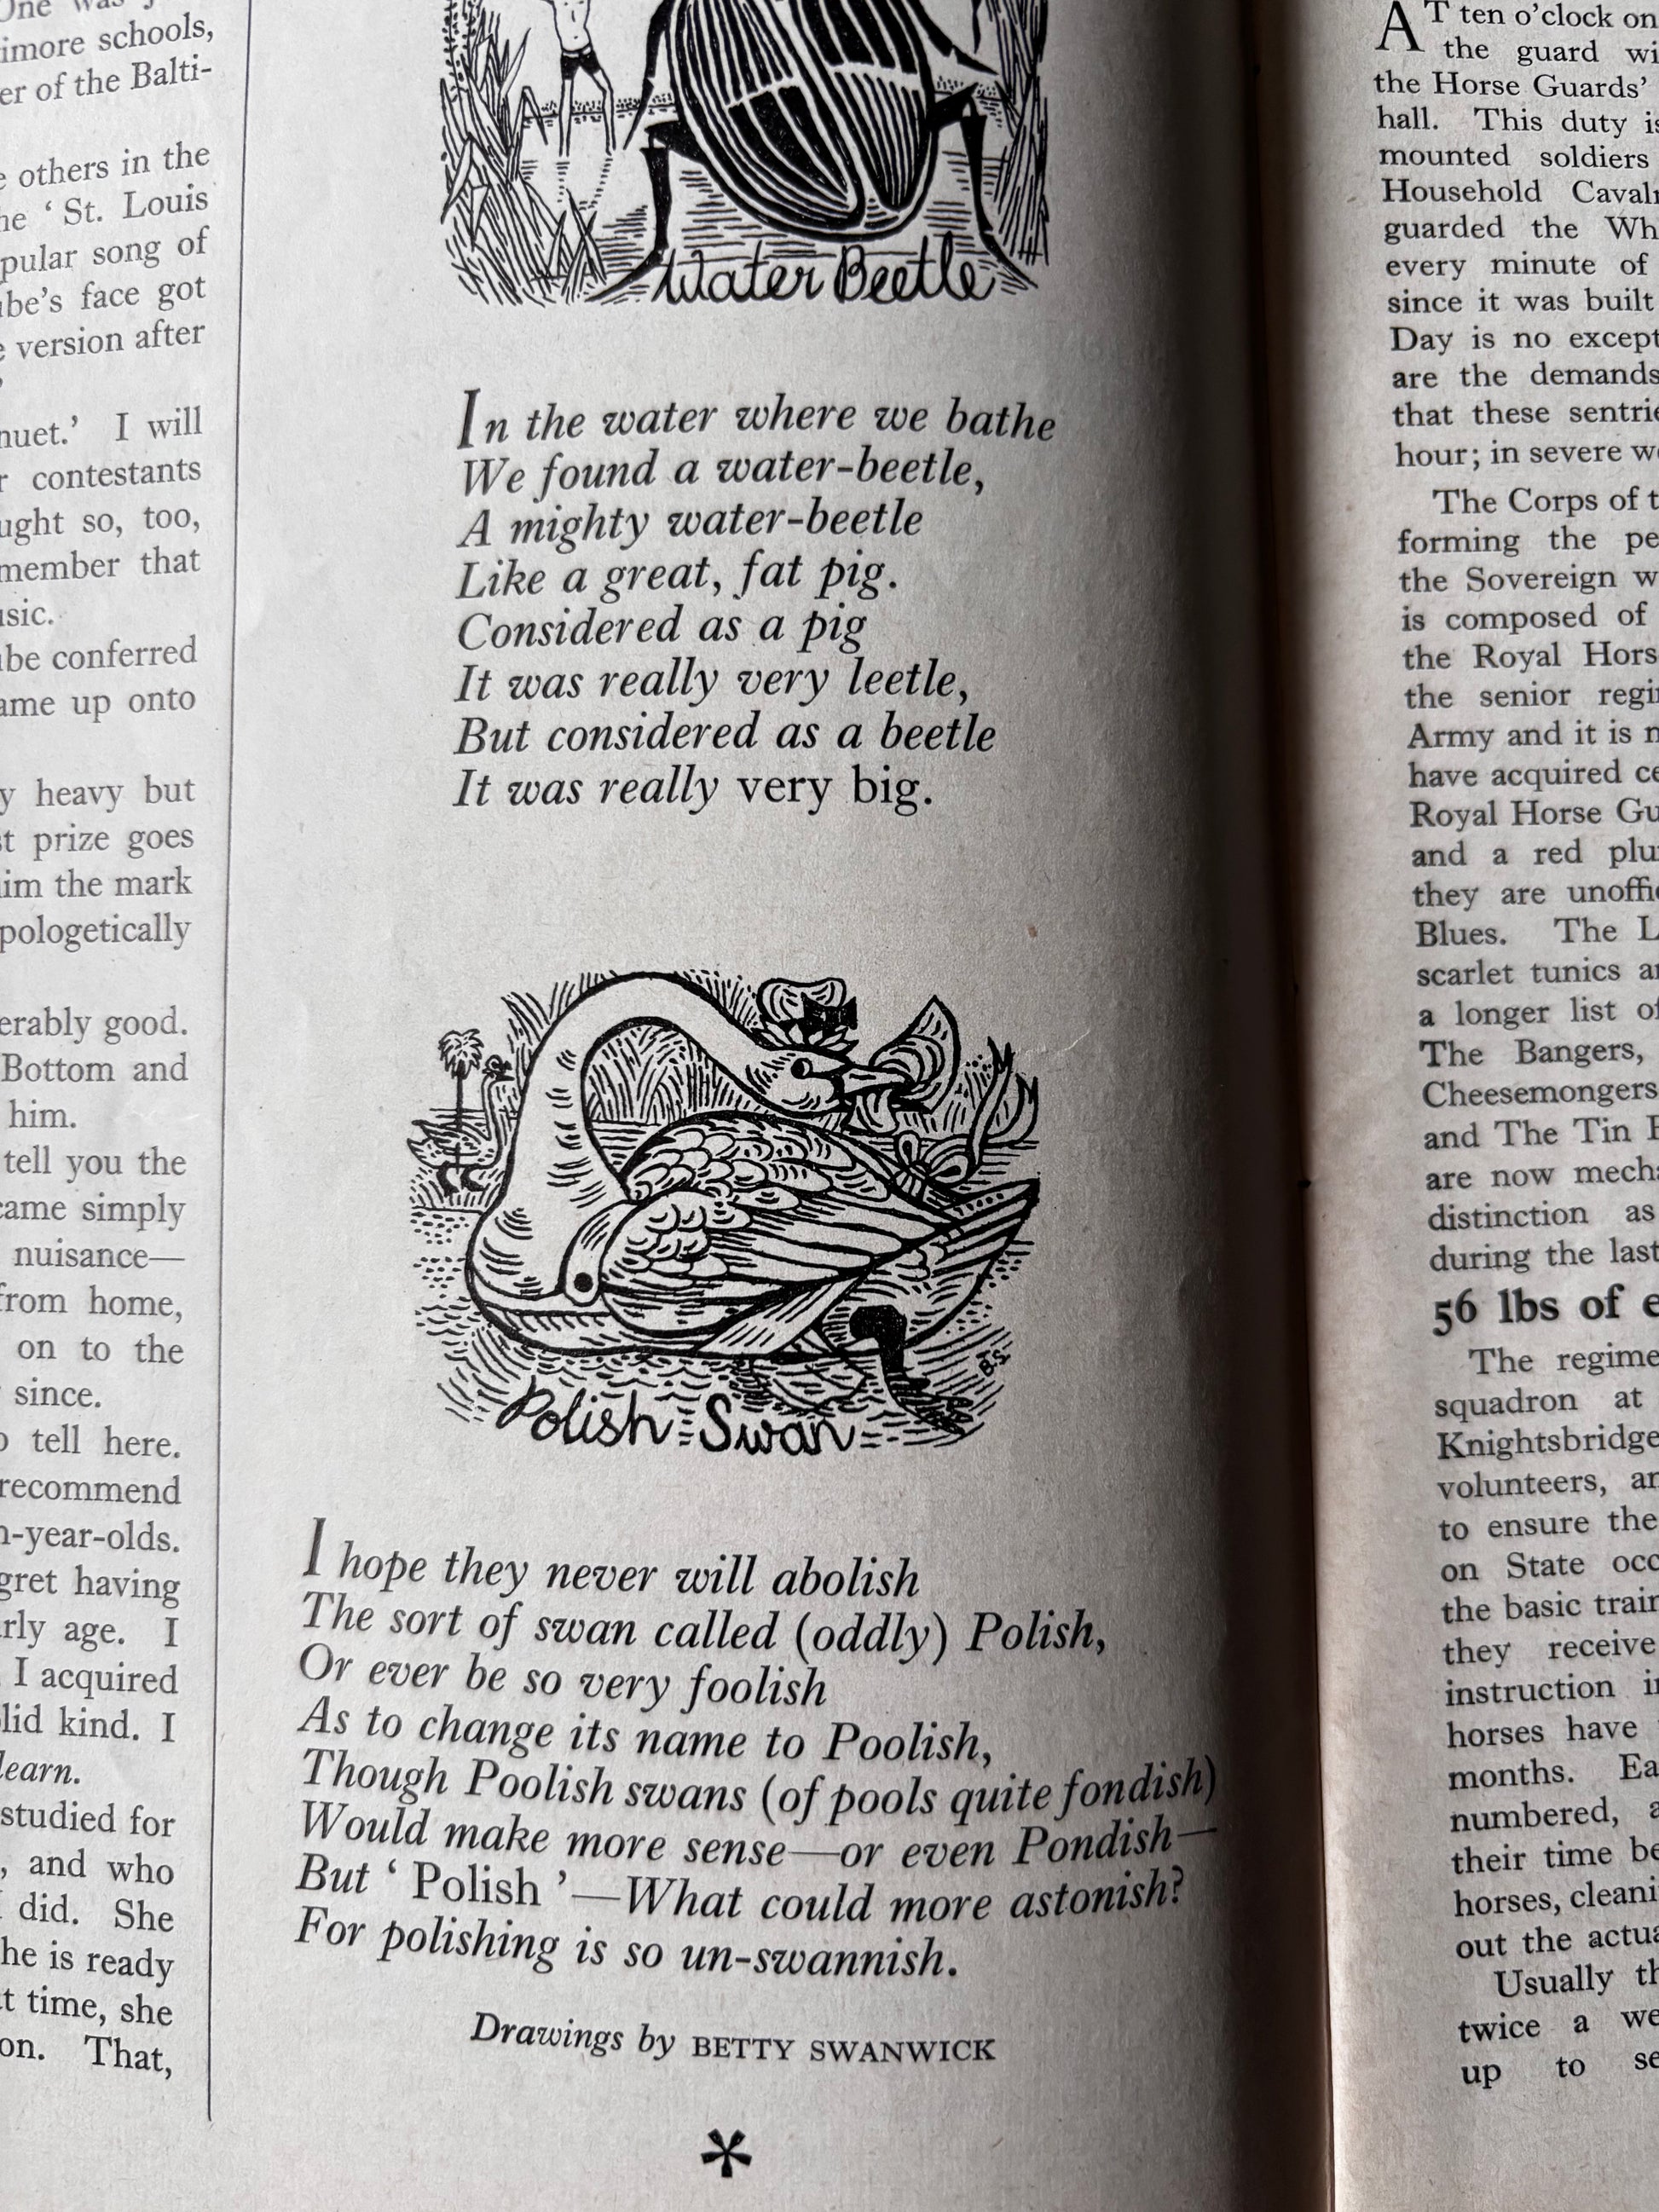 One was
imore schools,
er of the Balti-
others in the
he ‘ St. Louis
pular song of
be's face got
version after
nuet.’ I will
contestants
ught so, too,
member that
usic.
be conferred
ame up onto
y heavy but
st prize goes
im the mark
pologetically
erably good.
Bottom and
him.
tell you the
came simply
nuisance—
from home,
on to the
since.
tell here.
recommend
n-year-olds.
gret having
rly age. I
I acquired
lid kind. I
learn.
studied for
, and who
did. She
he is ready
t time, she
on. That,
Water Beetle
In the water where we bathe
We found a water-beetle,
A mighty water-beetle
Like a great, fat pig.
Considered as a pig
It was really very leetle,
But considered as a beetle
It was really very big.
B.S.
Polish Swan
I hope they never will abolish
The sort of swan called (oddly) Polish,
Or ever be so very foolish
As to change its name to Poolish,
Though Poolish swans (of pools quite fondish)
Would make more sense—or even Pondish—
But ‘ Polish ’—What could more astonish?
For polishing is so un-swannish.
Drawings by BETTY SWANWICK
*
AT ten o'clock on
the guard wi
the Horse Guards'
hall. This duty is
mounted soldiers
Household Caval
guarded the Wh
every minute of
since it was built
Day is no except
are the demands
that these sentrie
hour; in severe we
The Corps of t
forming the pe
the Sovereign w
is composed of
the Royal Hors
the senior regi
Army and it is n
have acquired ce
Royal Horse Gu
and a red plu
they are unoffi
Blues. The L
scarlet tunics a
a longer list of
The Bangers,
Cheesemongers
and The Tin B
are now mecha
distinction as
during the last
56 lbs of e
The regime
squadron at
Knightsbridge
volunteers, an
to ensure the
on State occ
the basic train
they receive
instruction in
horses have
months. Ea
numbered, a
their time be
horses, cleani
out the actua
Usually th
twice a we
up to se